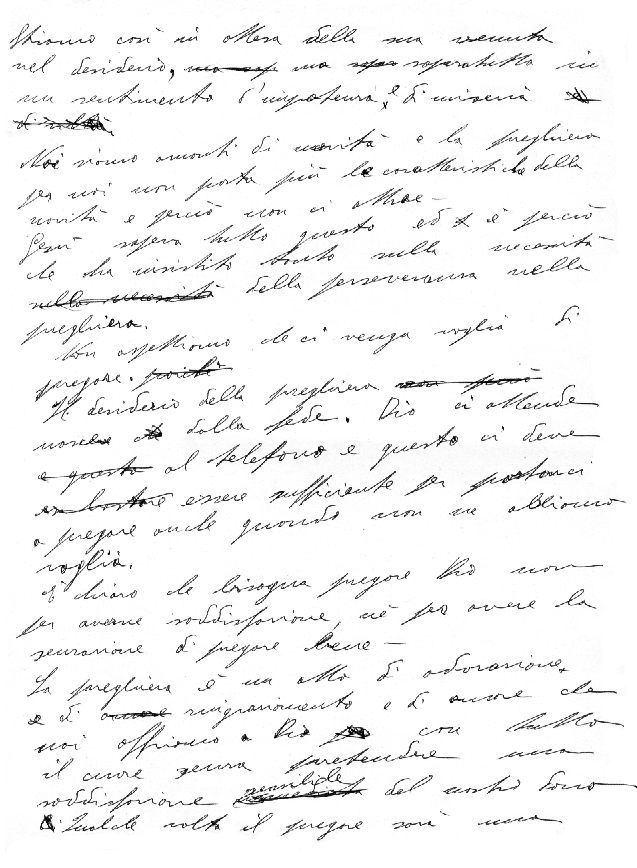 Stiamo così in attesa della sua venuta
nel desiderio, ma sopratutto in
un sentimento d'impotenza, e di miseria
Noi siamo amanti di novità e la preghiera
per noi non porta più le caratteristiche della
novità e perciò non ci attrae -
Gesù sapeva tutto questo ed è perciò
che ha insistito tanto sulla necessità
della perseveranza nella
preghiera.
Non aspettiamo che ci venga voglia di
pregare.
Il desiderio della preghiera
nasce dalla fede. Dio ci attende
al telefono e questo ci deve
essere sufficiente per portarci
a pregare anche quando non ne abbiamo
voglia.
È chiaro che bisogna pregare Dio non
per averne soddisfazione, nè per avere la
sensazione di pregare bene -
La preghiera è un atto di adorazione,
e di ringraziamento e di amore che
noi offriamo a Dio con tutto
il cuore senza pretendere una
soddisfazione sensibile del nostro dono
Qualche volta il pregare sarà una